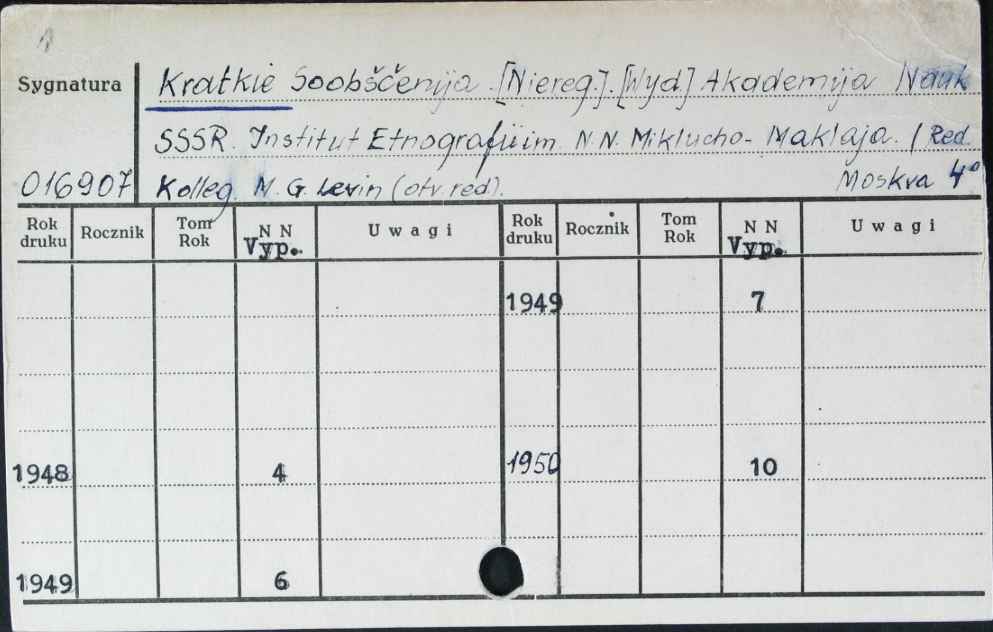 Sygnatura
Kratkie Soobščenija. [Niereg.]. [Wyd.] Akademija Nauk
SSSR. Institut Etnografii im. N.N. Miklucho-Maklaja. / Red.
016907
Kolleg. M. G. Levin (otv. red).
Moskva 4°
Rok druku Rocznik Tom Rok N N Vyp. Uwagi Rok druku Rocznik Tom Rok N N Vyp. Uwagi
1949 7
1948 4 1950 10
1949 6